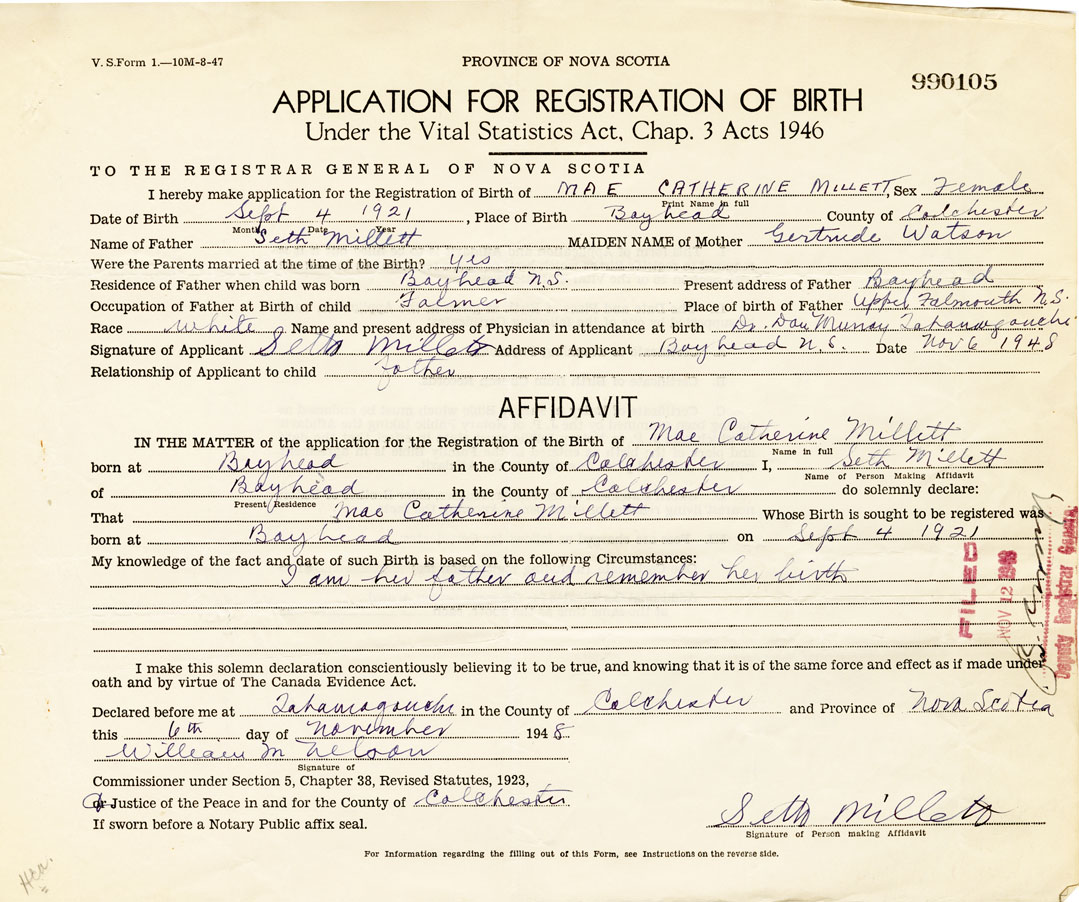 V. S. Form 1.—10M-8-47
PROVINCE OF NOVA SCOTIA
990105
APPLICATION FOR REGISTRATION OF BIRTH
Under the Vital Statistics Act, Chap. 3 Acts 1946
TO THE REGISTRAR GENERAL OF NOVA SCOTIA
I hereby make application for the Registration of Birth of MAE CATHERINE MILLETT, Sex Female
Print Name in full
Date of Birth Sept 4 1921, Place of Birth Bayhead County of Colchester
Month Date Year
Name of Father Seth Millett MAIDEN NAME of Mother Gertrude Watson
Were the Parents married at the time of the Birth? yes
Residence of Father when child was born Bayhead N.S. Present address of Father Bayhead
Occupation of Father at Birth of child Farmer Place of birth of Father Upper Falmouth N.S.
Race White Name and present address of Physician in attendance at birth Dr. Dan Murray Tatamagouche
Signature of Applicant Seth Millett Address of Applicant Bayhead N.S. Date Nov 6 1948
Relationship of Applicant to child father
AFFIDAVIT
IN THE MATTER of the application for the Registration of the Birth of Mae Catherine Millett
Name in full
born at Bayhead in the County of Colchester I, Seth Millett
Name of Person Making Affidavit
of Bayhead in the County of Colchester do solemnly declare:
Present Residence
That Mae Catherine Millett Whose Birth is sought to be registered was
born at Bayhead on Sept 4 1921
My knowledge of the fact and date of such Birth is based on the following Circumstances:
I am her father and remember her birth
FILED
NOV 12 1948
Deputy Registrar General
I make this solemn declaration conscientiously believing it to be true, and knowing that it is of the same force and effect as if made under
oath and by virtue of The Canada Evidence Act.
Declared before me at Tatamagouche in the County of Colchester and Province of Nova Scotia
this 6th day of November 1948
William M Nelson
Signature of
Commissioner under Section 5, Chapter 38, Revised Statutes, 1923,
or Justice of the Peace in and for the County of Colchester
If sworn before a Notary Public affix seal.
Seth Millett
Signature of Person making Affidavit
For Information regarding the filling out of this Form, see Instructions on the reverse side.